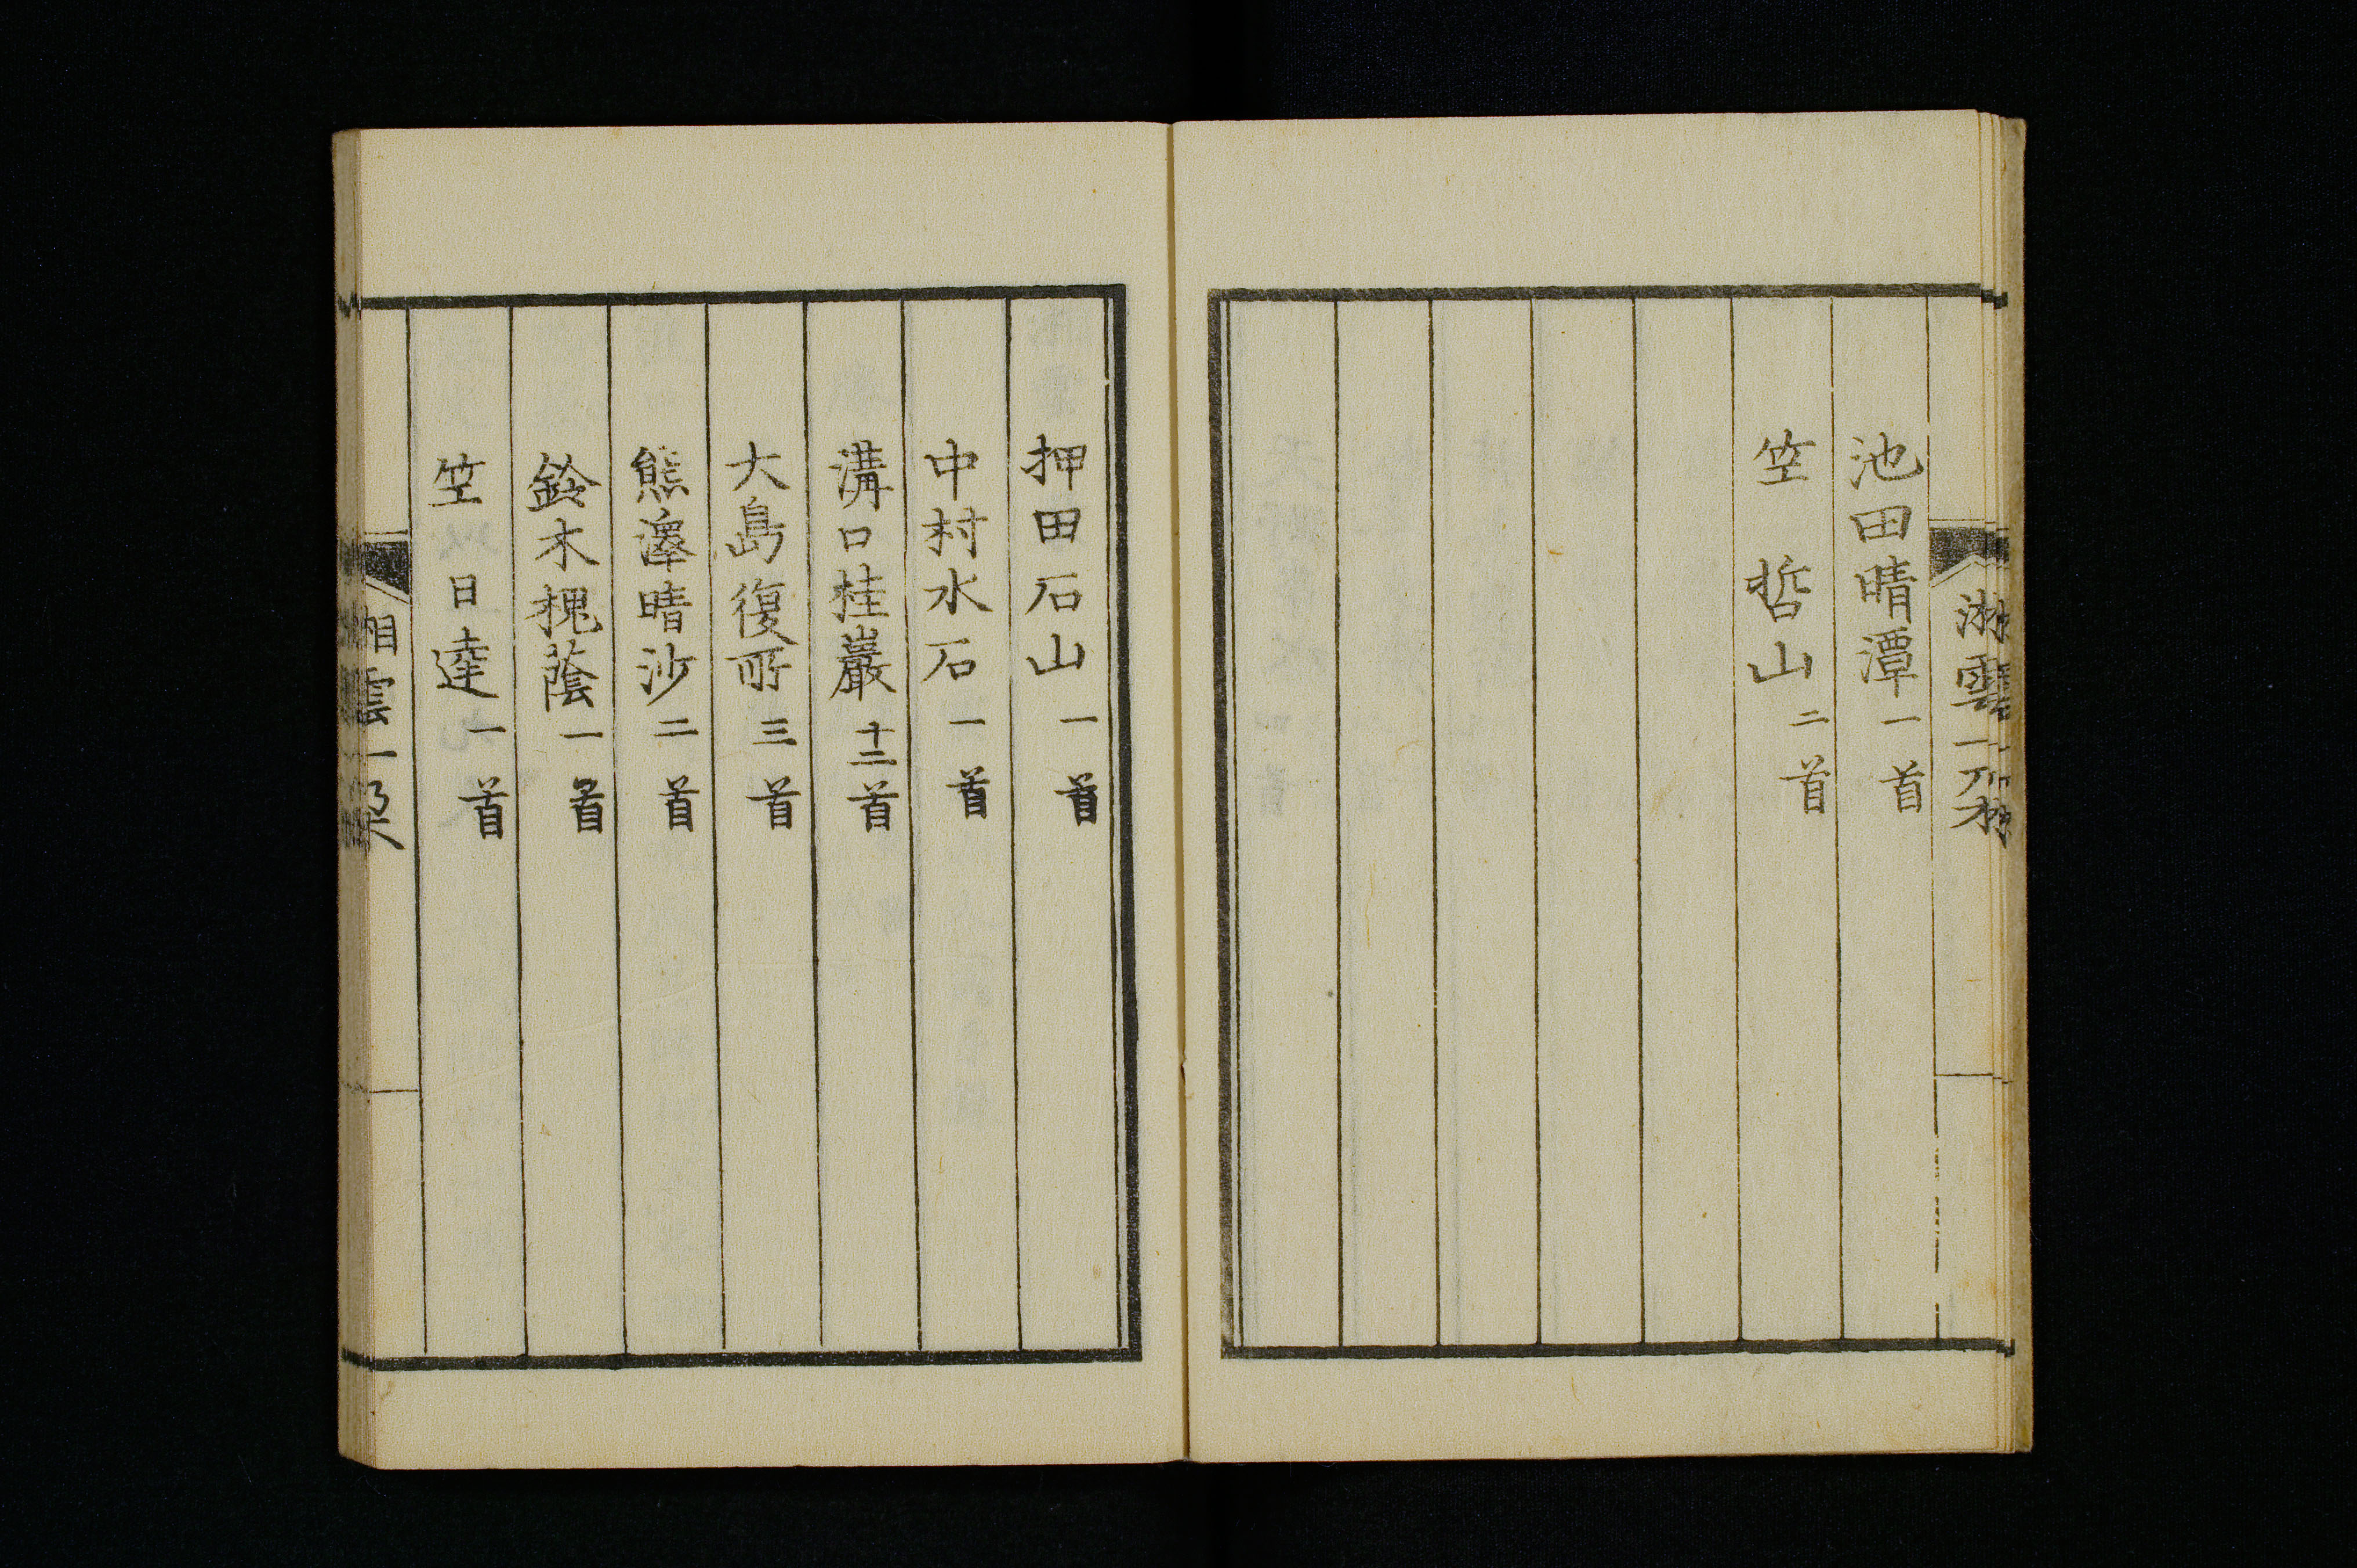 池田晴潭一首
笠 哲山二首
押田石山一首
中村水石一首
溝口桂巖十二首
大島復所三首
熊澤晴沙二首
鈴木槐蔭一首
笠 日達一首